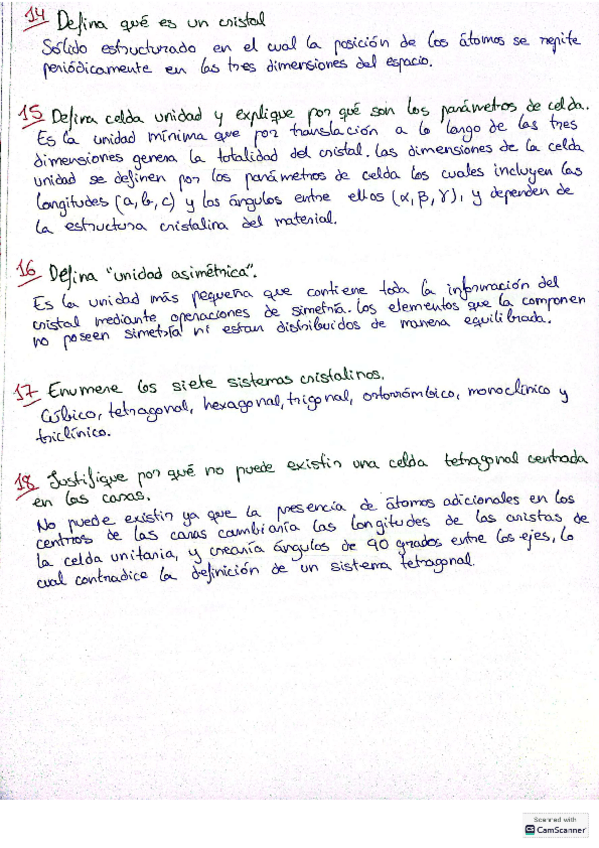 14 Defina qué es un cristal
Sólido estructurado en el cual la posición de los átomos se repite
periódicamente en las tres dimensiones del espacio.
15 Defina celda unidad y explique por qué son los parámetros de celda.
Es la unidad mínima que por translación a lo largo de las tres
dimensiones genera la totalidad del cristal. Las dimensiones de la celda
unidad se definen por los parámetros de celda los cuales incluyen las
longitudes (a, b, c) y los ángulos entre ellos (α, β, γ), y dependen de
la estructura cristalina del material.
16 Defina "unidad asimétrica".
Es la unidad más pequeña que contiene toda la información del
cristal mediante operaciones de simetría. Los elementos que la componen
no poseen simetría ni estan distribuidos de manera equilibrada.
17 Enumere los siete sistemas cristalinos.
Cúbico, tetragonal, hexagonal, trigonal, ortorrómbico, monoclínico y
triclínico.
18 Justifique por qué no puede existir una celda tetragonal centrada
en las caras.
No puede existir ya que la presencia de átomos adicionales en los
centros de las caras cambiaría las longitudes de las aristas de
la celda unitaria, y crearía ángulos de 90 grados entre los ejes, lo
cual contradice la definición de un sistema tetragonal.
Scanned with
CS CamScanner